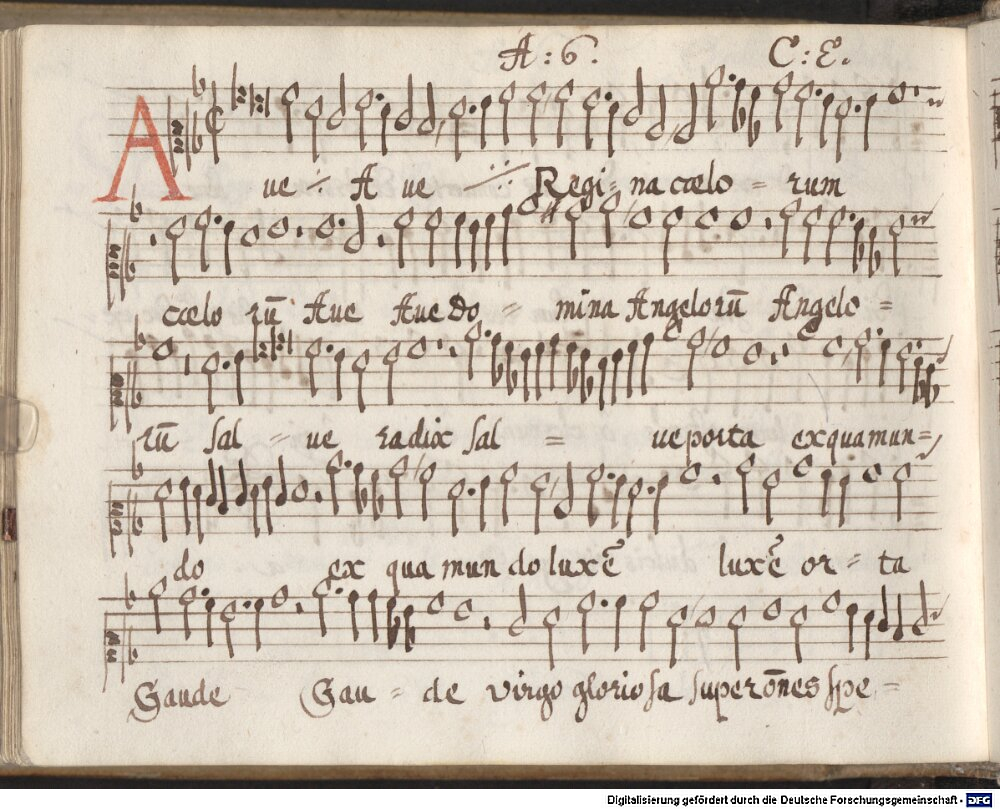 A : 6 . C : E .
A ve ·/· A ve ·/· Regi = na cœlo = rum
cœlo rū Ave Ave Do = mina Angelorū Angelo =
rū sal = ve radix sal = ve porta ex qua mun =
do ex qua mun do lux ē lux ē or = ta
Gaude Gau = de virgo gloriosa super ōnes spe =
Digitalisierung gefördert durch die Deutsche Forschungsgemeinschaft - DFG